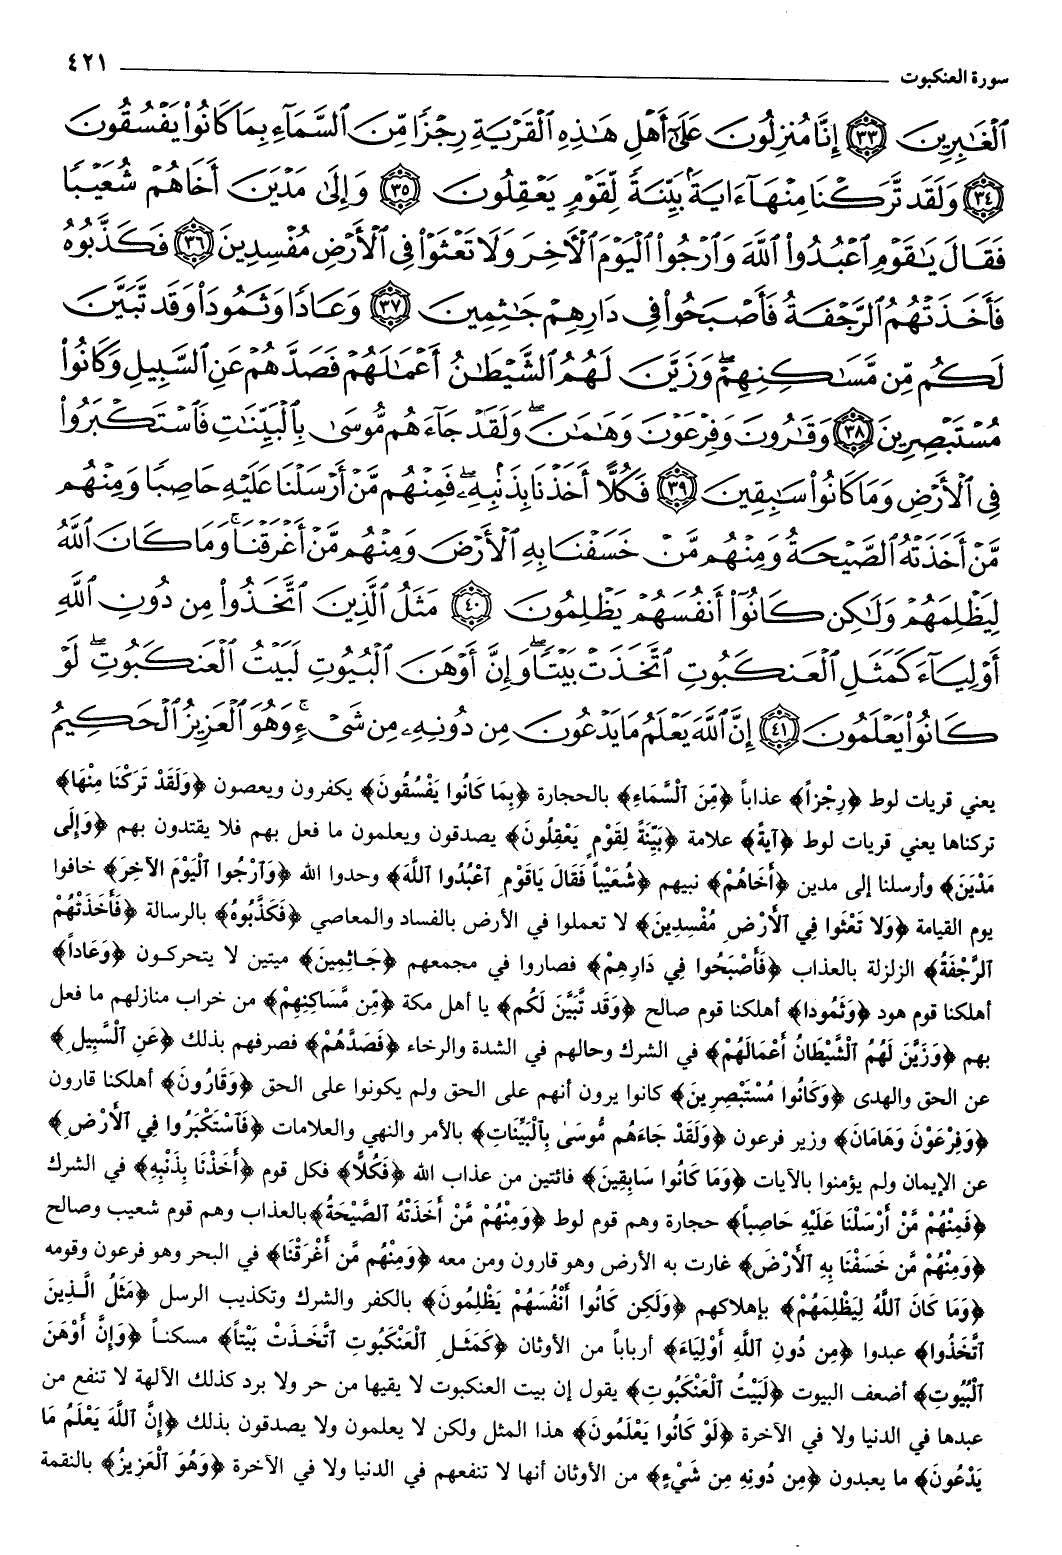 سورة العنكبوت ٤٢١
ٱلْغَٰبِرِينَ ٣٣ إِنَّا مُنزِلُونَ عَلَىٰٓ أَهْلِ هَٰذِهِ ٱلْقَرْيَةِ رِجْزًا مِّنَ ٱلسَّمَآءِ بِمَا كَانُوا۟ يَفْسُقُونَ
٣٤ وَلَقَد تَّرَكْنَا مِنْهَآ ءَايَةًۢ بَيِّنَةً لِّقَوْمٍ يَعْقِلُونَ ٣٥ وَإِلَىٰ مَدْيَنَ أَخَاهُمْ شُعَيْبًا
فَقَالَ يَٰقَوْمِ ٱعْبُدُوا۟ ٱللَّهَ وَٱرْجُوا۟ ٱلْيَوْمَ ٱلْأَخِرَ وَلَا تَعْثَوْا۟ فِى ٱلْأَرْضِ مُفْسِدِينَ ٣٦ فَكَذَّبُوهُ
فَأَخَذَتْهُمُ ٱلرَّجْفَةُ فَأَصْبَحُوا۟ فِى دَارِهِمْ جَٰثِمِينَ ٣٧ وَعَادًا وَثَمُودَا۟ وَقَد تَّبَيَّنَ
لَكُم مِّن مَّسَٰكِنِهِمْ ۖ وَزَيَّنَ لَهُمُ ٱلشَّيْطَٰنُ أَعْمَٰلَهُمْ فَصَدَّهُمْ عَنِ ٱلسَّبِيلِ وَكَانُوا۟
مُسْتَبْصِرِينَ ٣٨ وَقَٰرُونَ وَفِرْعَوْنَ وَهَٰمَٰنَ ۖ وَلَقَدْ جَآءَهُم مُّوسَىٰ بِٱلْبَيِّنَٰتِ فَٱسْتَكْبَرُوا۟
فِى ٱلْأَرْضِ وَمَا كَانُوا۟ سَٰبِقِينَ ٣٩ فَكُلًّا أَخَذْنَا بِذَنۢبِهِۦ ۖ فَمِنْهُم مَّنْ أَرْسَلْنَا عَلَيْهِ حَاصِبًا وَمِنْهُم
مَّنْ أَخَذَتْهُ ٱلصَّيْحَةُ وَمِنْهُم مَّنْ خَسَفْنَا بِهِ ٱلْأَرْضَ وَمِنْهُم مَّنْ أَغْرَقْنَا ۚ وَمَا كَانَ ٱللَّهُ
لِيَظْلِمَهُمْ وَلَٰكِن كَانُوٓا۟ أَنفُسَهُمْ يَظْلِمُونَ ٤٠ مَثَلُ ٱلَّذِينَ ٱتَّخَذُوا۟ مِن دُونِ ٱللَّهِ
أَوْلِيَآءَ كَمَثَلِ ٱلْعَنكَبُوتِ ٱتَّخَذَتْ بَيْتًا ۖ وَإِنَّ أَوْهَنَ ٱلْبُيُوتِ لَبَيْتُ ٱلْعَنكَبُوتِ ۖ لَوْ
كَانُوا۟ يَعْلَمُونَ ٤١ إِنَّ ٱللَّهَ يَعْلَمُ مَا يَدْعُونَ مِن دُونِهِۦ مِن شَىْءٍ ۚ وَهُوَ ٱلْعَزِيزُ ٱلْحَكِيمُ
يعني قريات لوط ﴿رِجْزاً﴾ عذاباً ﴿مِّنَ ٱلْسَّمَاءِ﴾ بالحجارة ﴿بِمَا كَانُوا يَفْسُقُونَ﴾ يكفرون ويعصون ﴿وَلَقَدْ تَرَكْنَا مِنْهَا﴾
تركناها يعني قريات لوط ﴿آيَةً﴾ علامة ﴿بَيِّنَةً لِقَوْمٍ يَعْقِلُونَ﴾ يصدقون ويعلمون ما فعل بهم فلا يقتدون بهم ﴿وَإِلَى
مَدْيَنَ﴾ وأرسلنا إلى مدين ﴿أَخَاهُمْ﴾ نبيهم ﴿شُعَيْباً فَقَالَ يَاقَوْمِ ٱعْبُدُوا ٱللَّهَ﴾ وحدوا الله ﴿وَٱرْجُوا ٱلْيَوْمَ الآخِرَ﴾ خافوا
يوم القيامة ﴿وَلَا تَعْثَوا فِي ٱلأَرْضِ مُفْسِدِينَ﴾ لا تعملوا في الأرض بالفساد والمعاصي ﴿فَكَذَّبُوهُ﴾ بالرسالة ﴿فَأَخَذَتْهُمْ
ٱلرَّجْفَةُ﴾ الزلزلة بالعذاب ﴿فَأَصْبَحُوا فِي دَارِهِمْ﴾ فصاروا في مجمعهم ﴿جَاثِمِينَ﴾ ميتين لا يتحركون ﴿وَعَاداً﴾
أهلكنا قوم هود ﴿وَثَمُودا﴾ أهلكنا قوم صالح ﴿وَقَد تَّبَيَّنَ لَكُم﴾ يا أهل مكة ﴿مِّن مَّسَاكِنِهِمْ﴾ من خراب منازلهم ما فعل
بهم ﴿وَزَيَّنَ لَهُمُ ٱلْشَّيْطَانُ أَعْمَالَهُمْ﴾ في الشرك وحالهم في الشدة والرخاء ﴿فَصَدَّهُمْ﴾ فصرفهم بذلك ﴿عَنِ ٱلْسَّبِيلِ﴾
عن الحق والهدى ﴿وَكَانُوا مُسْتَبْصِرِينَ﴾ كانوا يرون أنهم على الحق ولم يكونوا على الحق ﴿وَقَارُونَ﴾ أهلكنا قارون
﴿وَفِرْعَوْنَ وَهَامَانَ﴾ وزير فرعون ﴿وَلَقَدْ جَاءَهُم مُّوسَىٰ بِٱلْبَيِّنَاتِ﴾ بالأمر والنهي والعلامات ﴿فَٱسْتَكْبَرُوا فِي ٱلأَرْضِ﴾
عن الإيمان ولم يؤمنوا بالآيات ﴿وَمَا كَانُوا سَابِقِينَ﴾ فائتين من عذاب الله ﴿فَكُلاًّ﴾ فكل قوم ﴿أَخَذْنَا بِذَنْبِهِ﴾ في الشرك
﴿فَمِنْهُمْ مَّنْ أَرْسَلْنَا عَلَيْهِ حَاصِباً﴾ حجارة وهم قوم لوط ﴿وَمِنْهُمْ مَّنْ أَخَذَتْهُ ٱلصَّيْحَةُ﴾ بالعذاب وهم قوم شعيب وصالح
﴿وَمِنْهُمْ مَّن خَسَفْنَا بِهِ ٱلأَرْضَ﴾ غارت به الأرض وهو قارون ومن معه ﴿وَمِنْهُم مَّن أَغْرَقْنَا﴾ في البحر وهو فرعون وقومه
﴿وَمَا كَانَ ٱللَّهُ لِيَظْلِمَهُمْ﴾ بإهلاكهم ﴿وَلَكِن كَانُوا أَنْفُسَهُمْ يَظْلِمُونَ﴾ بالكفر والشرك وتكذيب الرسل ﴿مَثَلُ الَّذِينَ
ٱتَّخَذُوا﴾ عبدوا ﴿مِن دُونِ ٱللَّهِ أَوْلِيَاءَ﴾ أرباباً من الأوثان ﴿كَمَثَلِ ٱلْعَنْكَبُوتِ ٱتَّخَذَتْ بَيْتاً﴾ مسكناً ﴿وَإِنَّ أَوْهَنَ
ٱلْبُيُوتِ﴾ أضعف البيوت ﴿لَبَيْتُ ٱلْعَنْكَبُوتِ﴾ يقول إن بيت العنكبوت لا يقيها من حر ولا برد كذلك الآلهة لا تنفع من
عبدها في الدنيا ولا في الآخرة ﴿لَوْ كَانُوا يَعْلَمُونَ﴾ هذا المثل ولكن لا يعلمون ولا يصدقون بذلك ﴿إِنَّ ٱللَّهَ يَعْلَمُ مَا
يَدْعُونَ﴾ ما يعبدون ﴿مِن دُونِهِ مِن شَيْءٍ﴾ من الأوثان أنها لا تنفعهم في الدنيا ولا في الآخرة ﴿وَهُوَ ٱلْعَزِيزُ﴾ بالنقمة